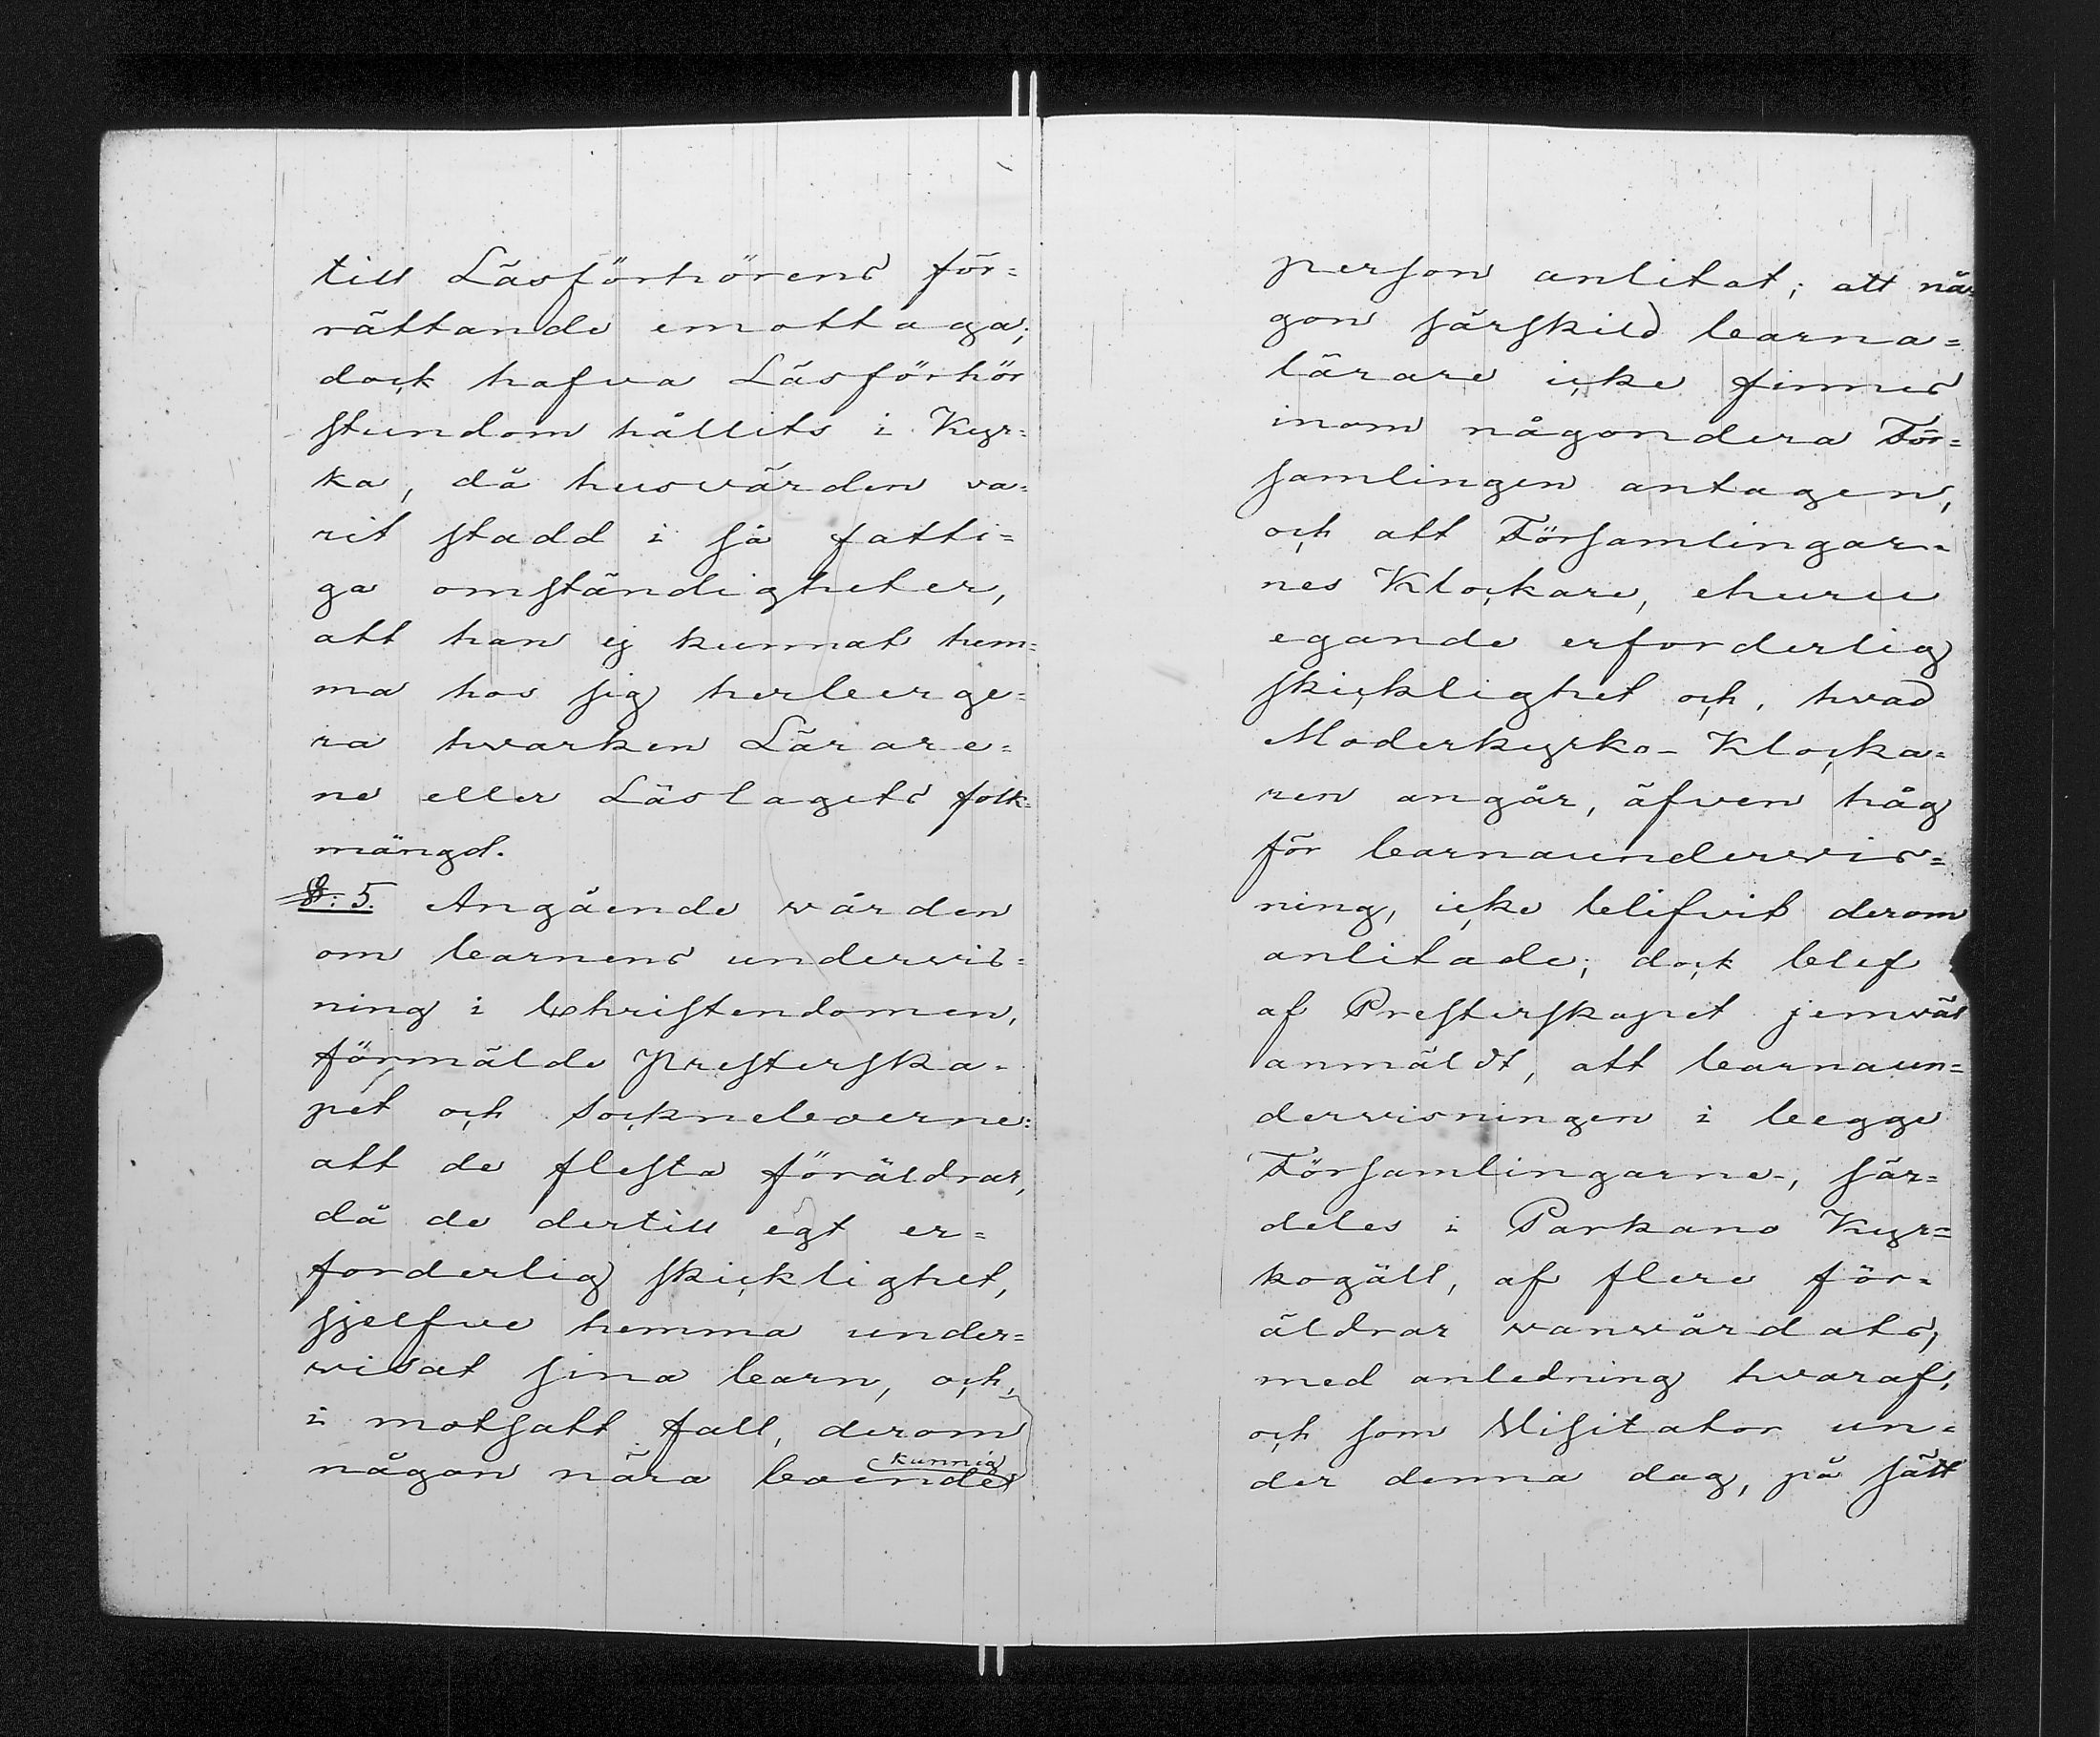 till Läsförhörens för=
rättande emottaga;
dock hafva Läsförhör
stundom hållits i Kyr=
ka, då husvärden va=
rit stadd i så fatti=
ga omständigheter,
att han ej kunnat hem=
ma hos sig herberge=
ra hvarken Lärare=
ne eller Läslagets folk=
mängd.
§: 5. Angående vården
om barnens undervis=
ning i Christendomen,
förmälde Presterska=
pet och Sockneboerne:
att de flesta föräldrar,
då de dertill egt er=
forderlig skicklighet,
sjelfve hemma under=
visat sina barn, och,
i motsatt fall, derom
någon nära boende kunnig
person anlitat; att nå=
gon särskild barna=
lärare icke finnes
inom någondera För=
samlingen antagen,
och att Församlingar=
nes Klockare, ehuru
egande erforderlig
skicklighet och, hvad
Moderkyrko-Klocka=
ren angår, äfven håg
för barnaundervis=
ning, icke blifvit derom
anlitade; dock blef
af Presterskapet jemväl
anmäldt, att barnaun=
dervisningen i begge
Församlingarne, sär=
deles i Parkano Kyr=
kogäll, af flere för=
äldrar vanvårdats,
med anledning hvaraf,
och som Visitator un=
der denna dag, på sätt